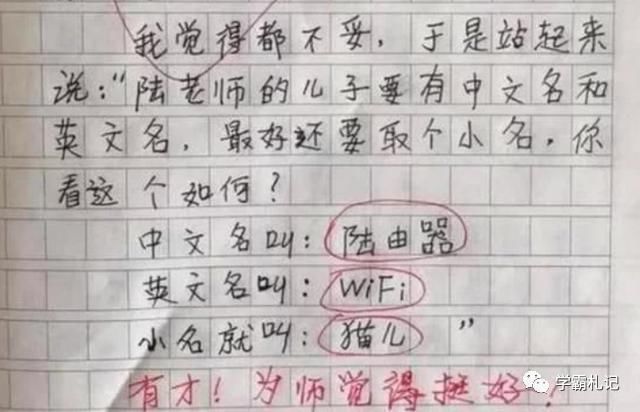 我觉得都不妥，于是站起来
说："陆老师的儿子要有中文名和
英文名，最好还要取个小名，你
看这个如何？
中文名叫：陆由器
英文名叫：WiFi
小名就叫：猫儿"
有才！为师觉得挺好！
学霸札记